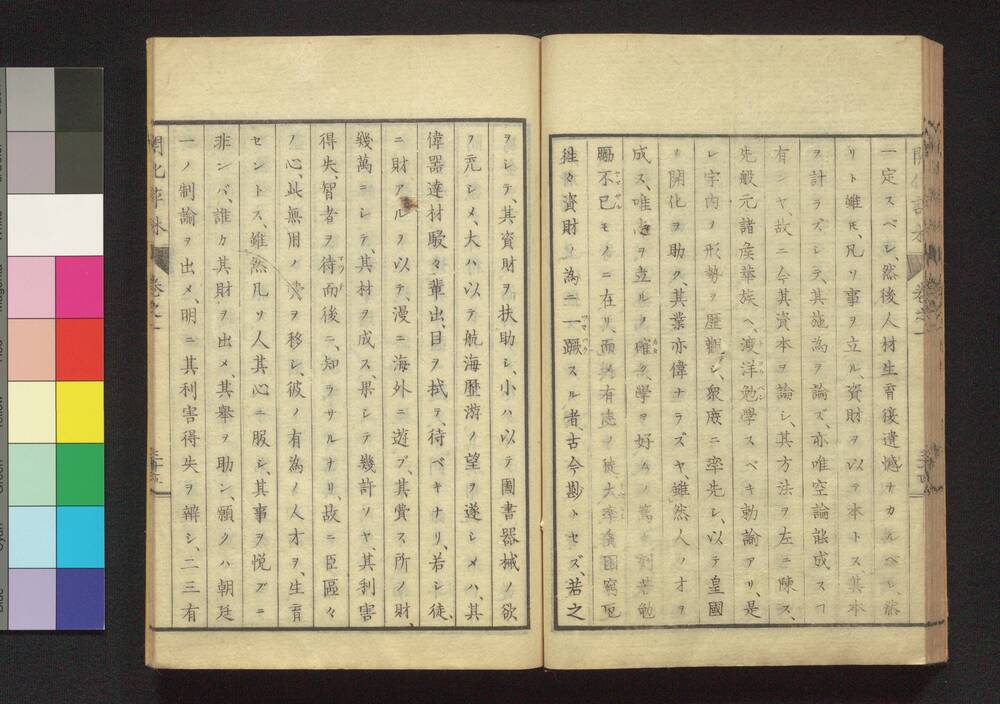 一定スベシ、然後人材生育復遺憾ナカルベシ、然
リト雖モ、凡ソ事ヲ立ル、資財ヲ以テ本トス、其本
ヲ計ラズシテ、其施為ヲ論ズ、亦唯空論能成スヿ
有ンヤ、故ニ今其資本ヲ論シ、其方法ヲ左ニ陳ス、
先般元諸矦華族ヘ、渡洋勉學スベキ勅諭アリ、是
レ宇内ノ形勢ヲ歴觀シ、衆庶ニ率先シ、以テ皇國
ノ開化ヲ助ク、其業亦偉ナラズヤ、雖然人ノオヲ
成ス、唯志ヲ立ルノ確ク、學ヲ好ムノ篤ク刻苦勉
勵不已モノニ在リ、而〆有志ノ徒大率貧困窮厄
徃々資財ノ為ニ一蹶スル者、古今尠トセズ、若之
ヲシテ、其資財ヲ扶助シ、小ハ以テ圖書器械ノ欲
ヲ充シメ、大ハ以テ航海歴游ノ望ヲ遂シメハ、其
偉器達材駸々輩出、目ヲ拭テ待ベキナリ、若シ徒
ニ財アルヲ以テ、漫ニ海外ニ遊ブ、其費ス所ノ財、
幾萬ニシテ、其材ヲ成ス、果シテ幾許ソヤ、其利害
得失、智者ヲ待而後ニ、知ラサルナリ、故ニ臣區々
ノ心、此無用ノ費ヲ移シ、彼ノ有為ノ人才ヲ、生育
セントス、雖然凡ソ人其心ニ服シ、其事ヲ悦ブニ
非ンバ、誰カ其財ヲ出メ、其舉ヲ助ン、願クハ朝廷
一ノ制諭ヲ出メ、明ニ其利害得失ヲ辨シ、二三有